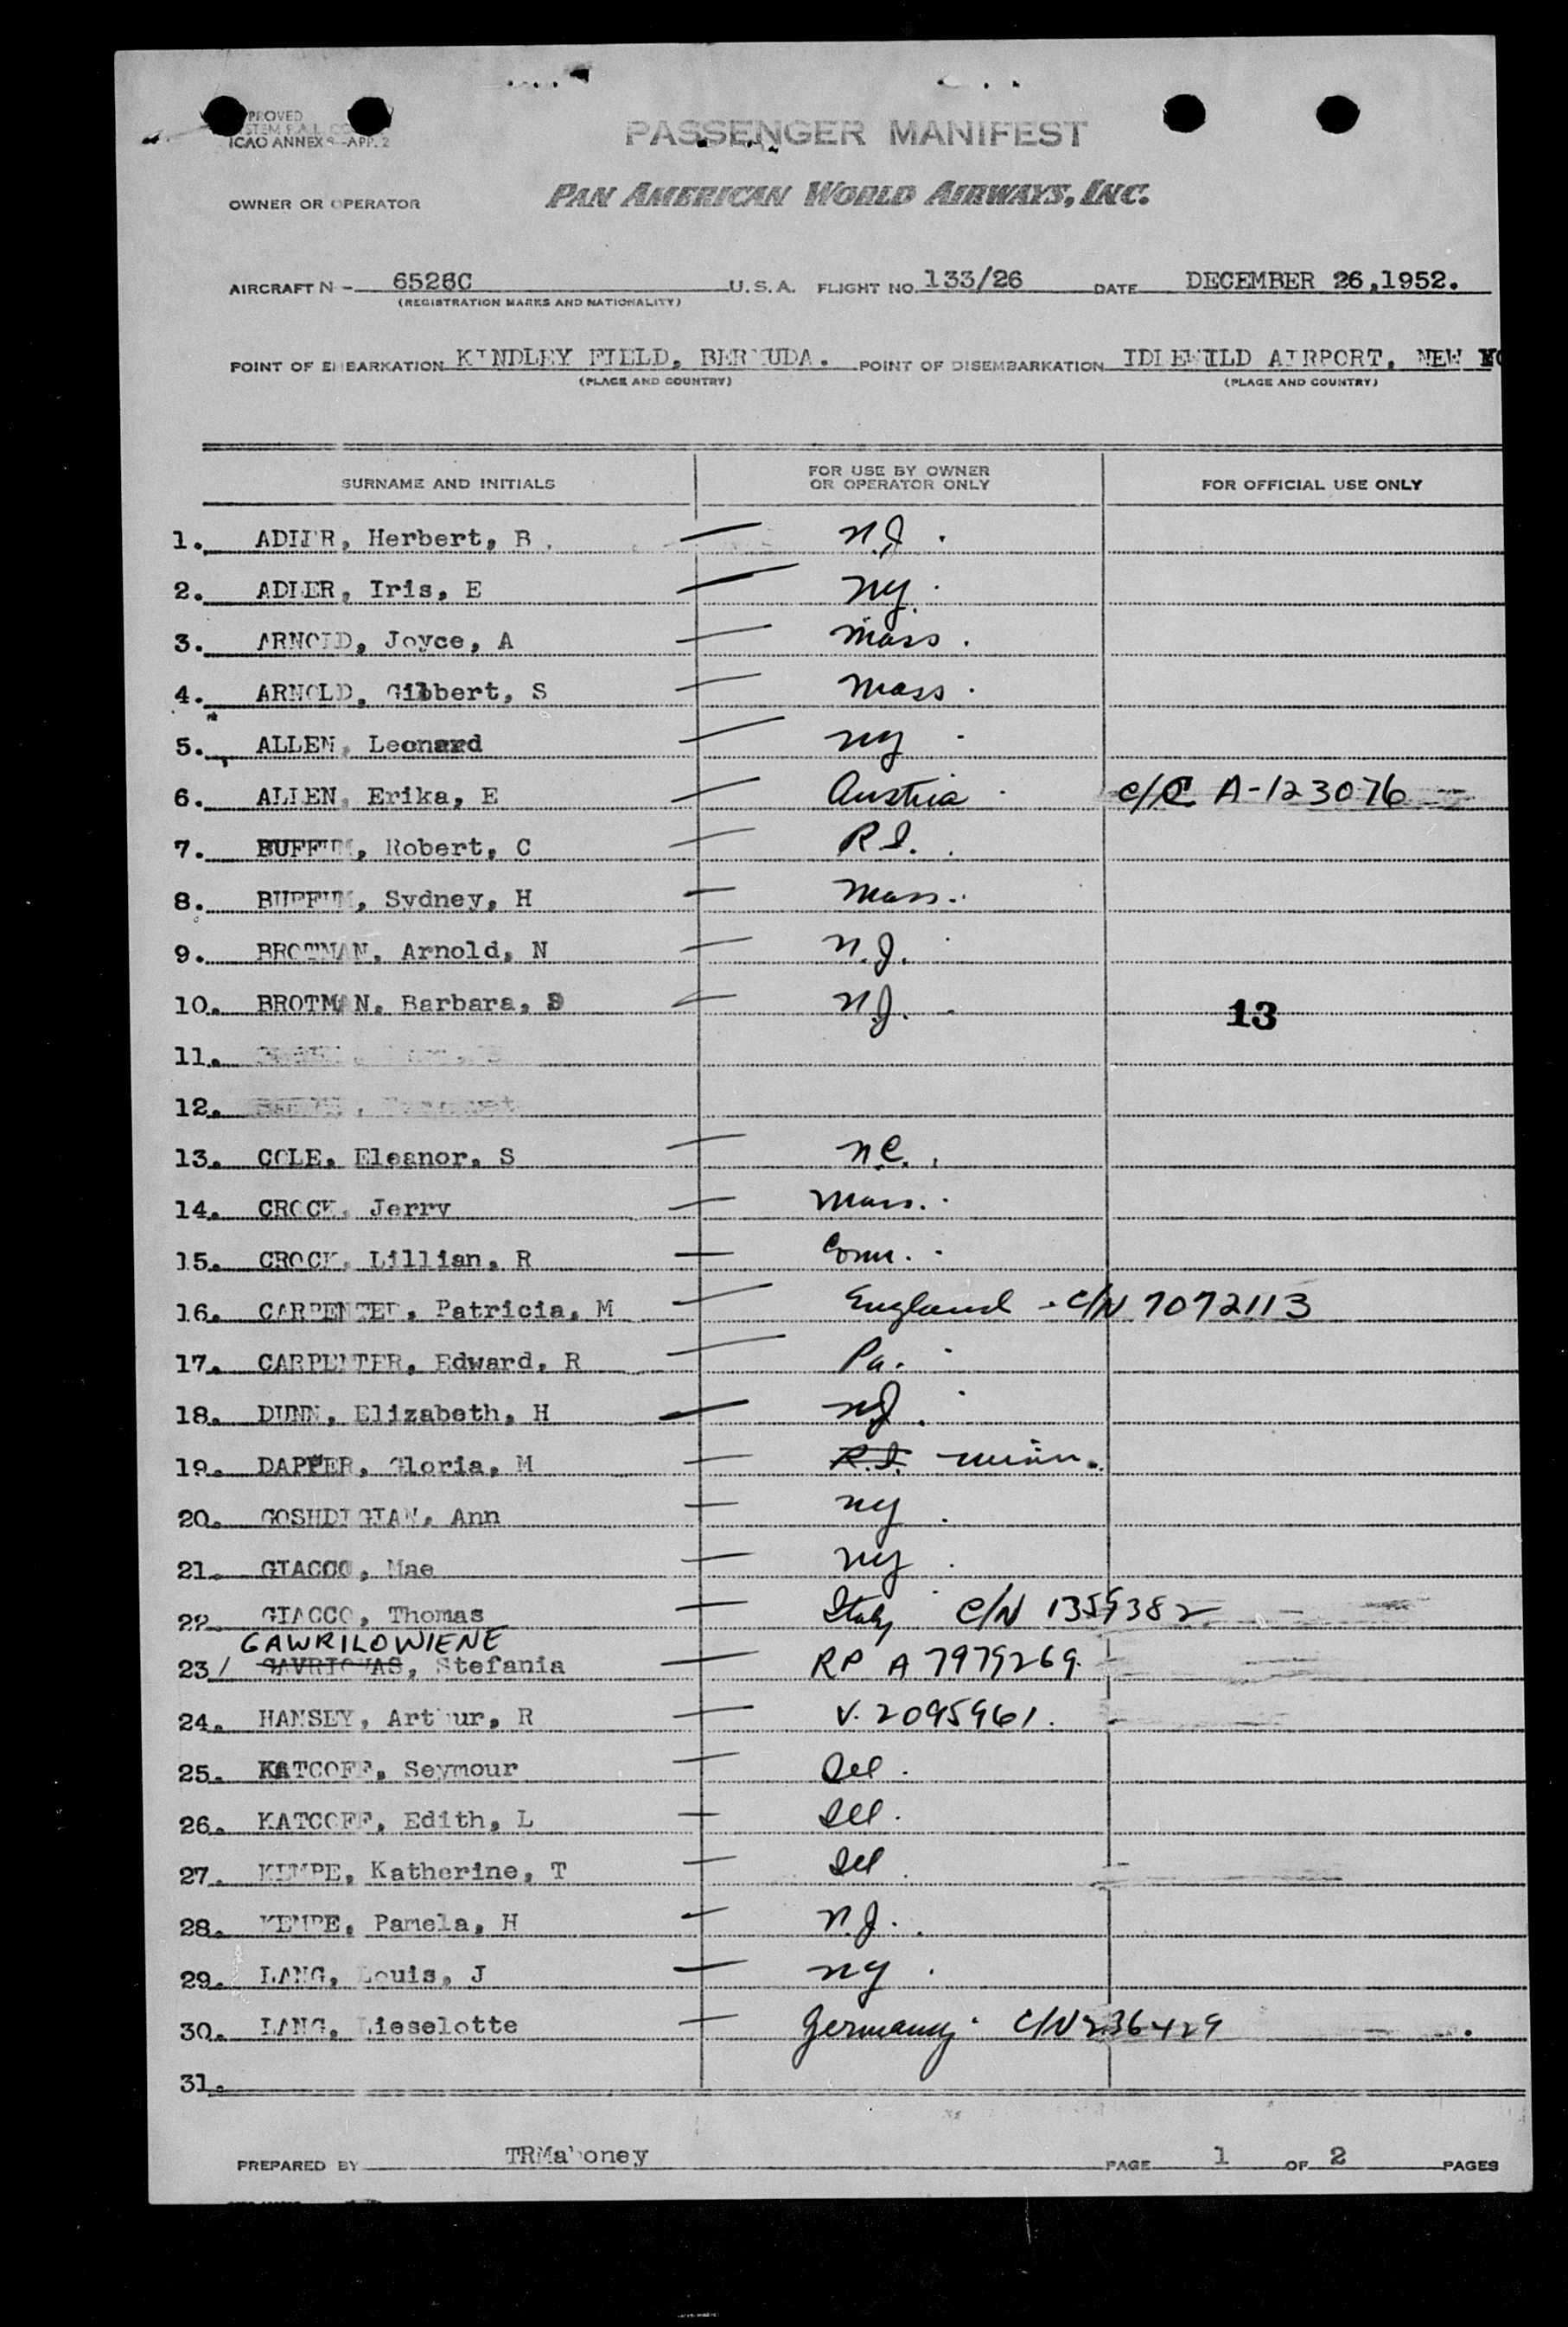 APPROVED
SYSTEM F.A.L. CO
ICAO ANNEX 9-APP. 2
PASSENGER MANIFEST
OWNER OR OPERATOR PAN AMERICAN WORLD AIRWAYS, INC.
AIRCRAFT N - 6526C U.S.A. FLIGHT NO. 133/26 DATE DECEMBER 26,1952.
(REGISTRATION MARKS AND NATIONALITY)
POINT OF EMBARKATION KINDLEY FIELD, BERMUDA. POINT OF DISEMBARKATION IDLEWILD AIRPORT, NEW YO
(PLACE AND COUNTRY) (PLACE AND COUNTRY)
SURNAME AND INITIALS FOR USE BY OWNER OR OPERATOR ONLY FOR OFFICIAL USE ONLY
1. ADLER, Herbert, B. — N.J.
2. ADLER, Iris, E — NY.
3. ARNOLD, Joyce, A — Mass.
4. ARNOLD, Gilbert, S — Mass.
5. ALLEN, Leonard — NY
6. ALLEN, Erika, E — Austria c/c A-123076
7. BUFFUM, Robert, C — R.I.
8. BUFFUM, Sydney, H — Mass.
9. BROTMAN, Arnold, N — N.J.
10. BROTMAN, Barbara, — N.J.
13
11.
12.
13. COLE, Eleanor, S — N.C.
14. CROCK, Jerry — Mass.
15. CROCK, Lillian, R — Conn.
16. CARPENTER, Patricia, M — England - C/N 7072113
17. CARPENTER, Edward, R — Pa.
18. DUNN, Elizabeth, H — NJ.
19. DAPPER, Gloria, M — R.I. Minn.
20. GOSHDIGIAN, Ann — NY.
21. GIACCO, Mae — NY.
22. GIACCO, Thomas — Italy C/N 1359382
GAWRILOWIENE
23/ GAVRILOVAS, Stefania — RP A 7979269.
24. HANSEY, Arthur, R — V. 2095961.
25. KATCOFF, Seymour — Ill.
26. KATCOFF, Edith, L — Ill.
27. KEMPE, Katherine, T — Ill.
28. KEMPE, Pamela, H — N.J.
29. LANG, Louis, J — NY.
30. LANG, Lieselotte — Germany C/N 236429
31.
PREPARED BY TRMahoney PAGE 1 OF 2 PAGES